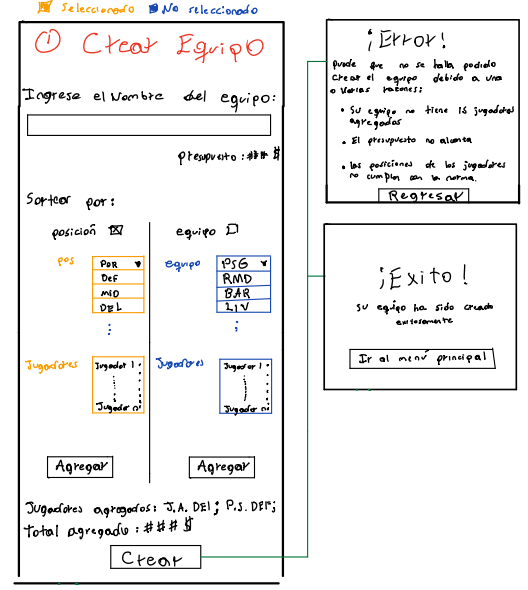 Seleccionado No seleccionado
① Crear Equipo
Ingrese el Nombre del equipo:
presupuesto: ### $
Sortear por:
posición equipo
pos
POR
DEF
MID
DEL
equipo
PSG
RMD
BAR
LIV
Jugadores
Jugador 1
Jugador n
Jugadores
Jugador 1
Jugador n
Agregar Agregar
Jugadores agregados: J.A. DEl; P.S. DEF;
Total agregado: ### $
Crear
¡Error!
Puede que no se halla podido
crear el equipo debido a una
o varias razones:
• Su equipo no tiene 15 jugadores
agregados
• El presupuesto no alcanza
• las posiciones de los jugadores
no cumplen con la norma.
Regresar
¡Exito!
Su equipo ha sido creado
exitosamente
Ir al menú principal